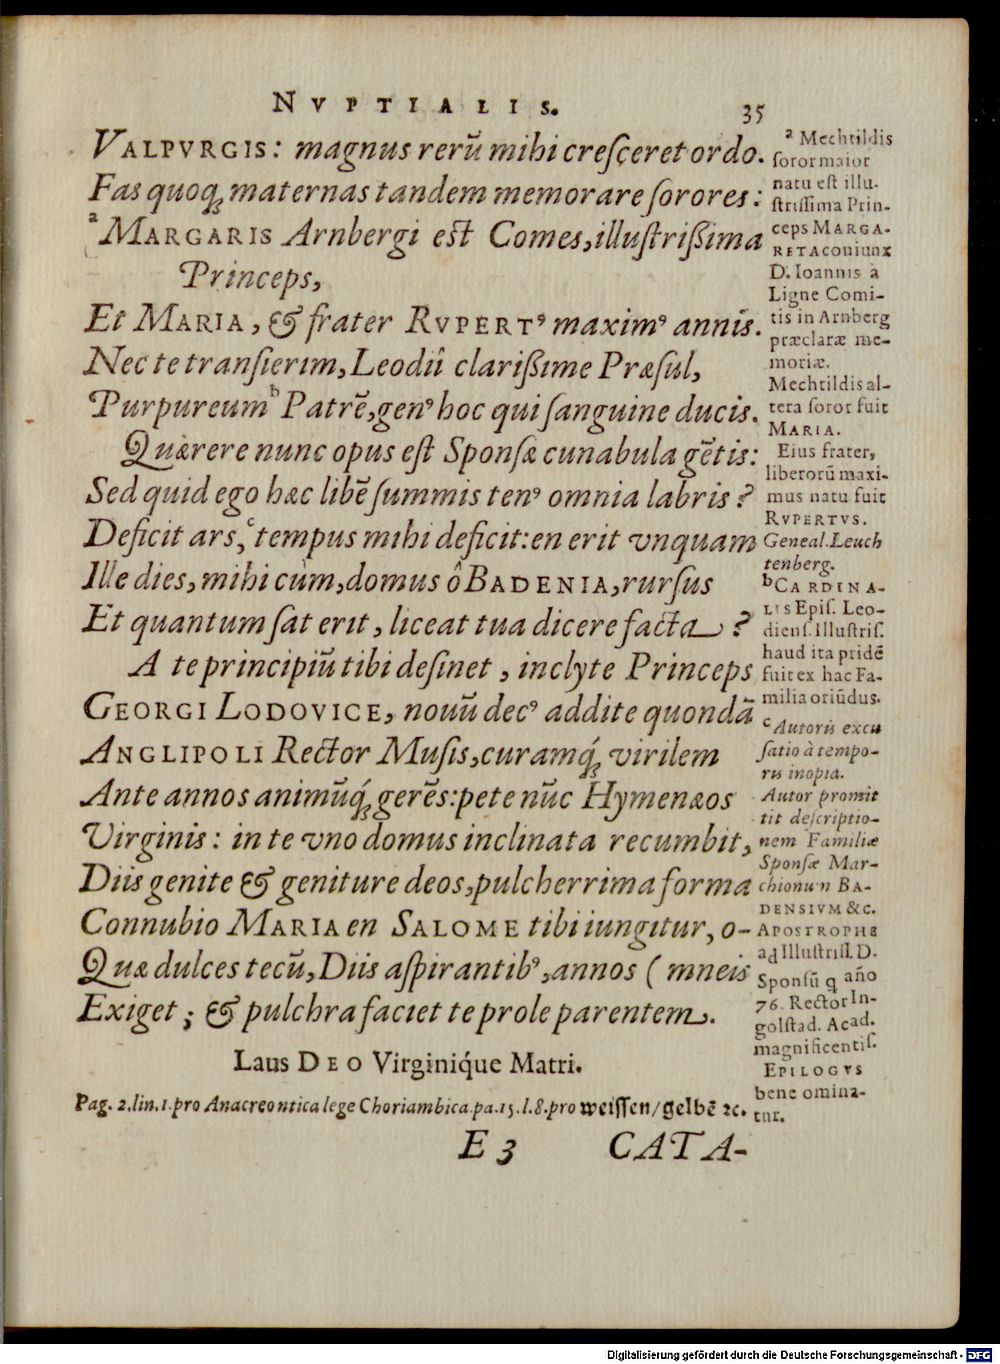 NVPTIALIS. 35
VALPVRGIS: magnus rerũ mihi cresceret ordo.
Fas quoq; maternas tandem memorare sorores:
ᵃMARGARIS Arnbergi est Comes, illustrißima
Princeps,
Et MARIA, & frater RVPERTꝰ maximꝰ annis.
Nec te transierim, Leodiî clarißime Præsul,
Purpureum ᵇ Patrẽ, genꝰ hoc qui sanguine ducis.
Quærere nunc opus est Sponsæ cunabula gẽtis:
Sed quid ego hæc libẽ summis tenꝰ omnia labris?
Deficit ars, ᶜ tempus mihi deficit: en erit vnquam
Ille dies, mihi cùm, domus ô BADENIA, rursus
Et quantum sat erit, liceat tua dicere facta?
A te principiũ tibi desinet, inclyte Princeps
GEORGI LODOVICE, nouũ decꝰ addite quondã
ANGLIPOLI Rector Musis, curamq́; virilem
Ante annos animũq́; gerẽs: pete nũc Hymenæos
Virginis: in te vno domus inclinata recumbit,
Diis genite & geniture deos, pulcherrima forma
Connubio MARIA en SALOME tibi iungitur, o-
Quæ dulces tecũ, Diis aspirantibꝰ, annos (mneis
Exiget; & pulchra faciet te prole parentem.
Laus DEO Virginiq́ue Matri.
Pag. 2. lin. 1. pro Anacreontica lege Choriambica. pa. 15. l. 8. pro weissen/gelbẽ ꝛc.
E 3 CATA-
ᵃ Mechtildis
soror maior
natu est illu-
strissima Prin-
ceps MARGA-
RETA coniunx
D. Ioannis à
Ligne Comi-
tis in Arnberg
præclaræ me-
moriæ.
Mechtildis al-
tera soror fuit
MARIA.
Eius frater,
liberorũ maxi-
mus natu fuit
RVPERTVS.
Geneal. Leuch
tenberg.
ᵇ CARDINA-
LIS Epis. Leo-
diens. Illustris.
haud ita pridẽ
fuit ex hac Fa-
milia oriũdus.
ᶜ Autoris excu
satio à tempo-
ris inopia.
Autor promit
tit descriptio-
nem Familiæ
Sponsæ Mar-
chionum BA-
DENSIVM &c.
APOSTROPHE
ad Illustriss. D.
Sponsũ q año
76. Rector In-
golstad. Acad.
magnificentis.
EPILOGVS
bene omina-
tur.
Digitalisierung gefördert durch die Deutsche Forschungsgemeinschaft - DFG